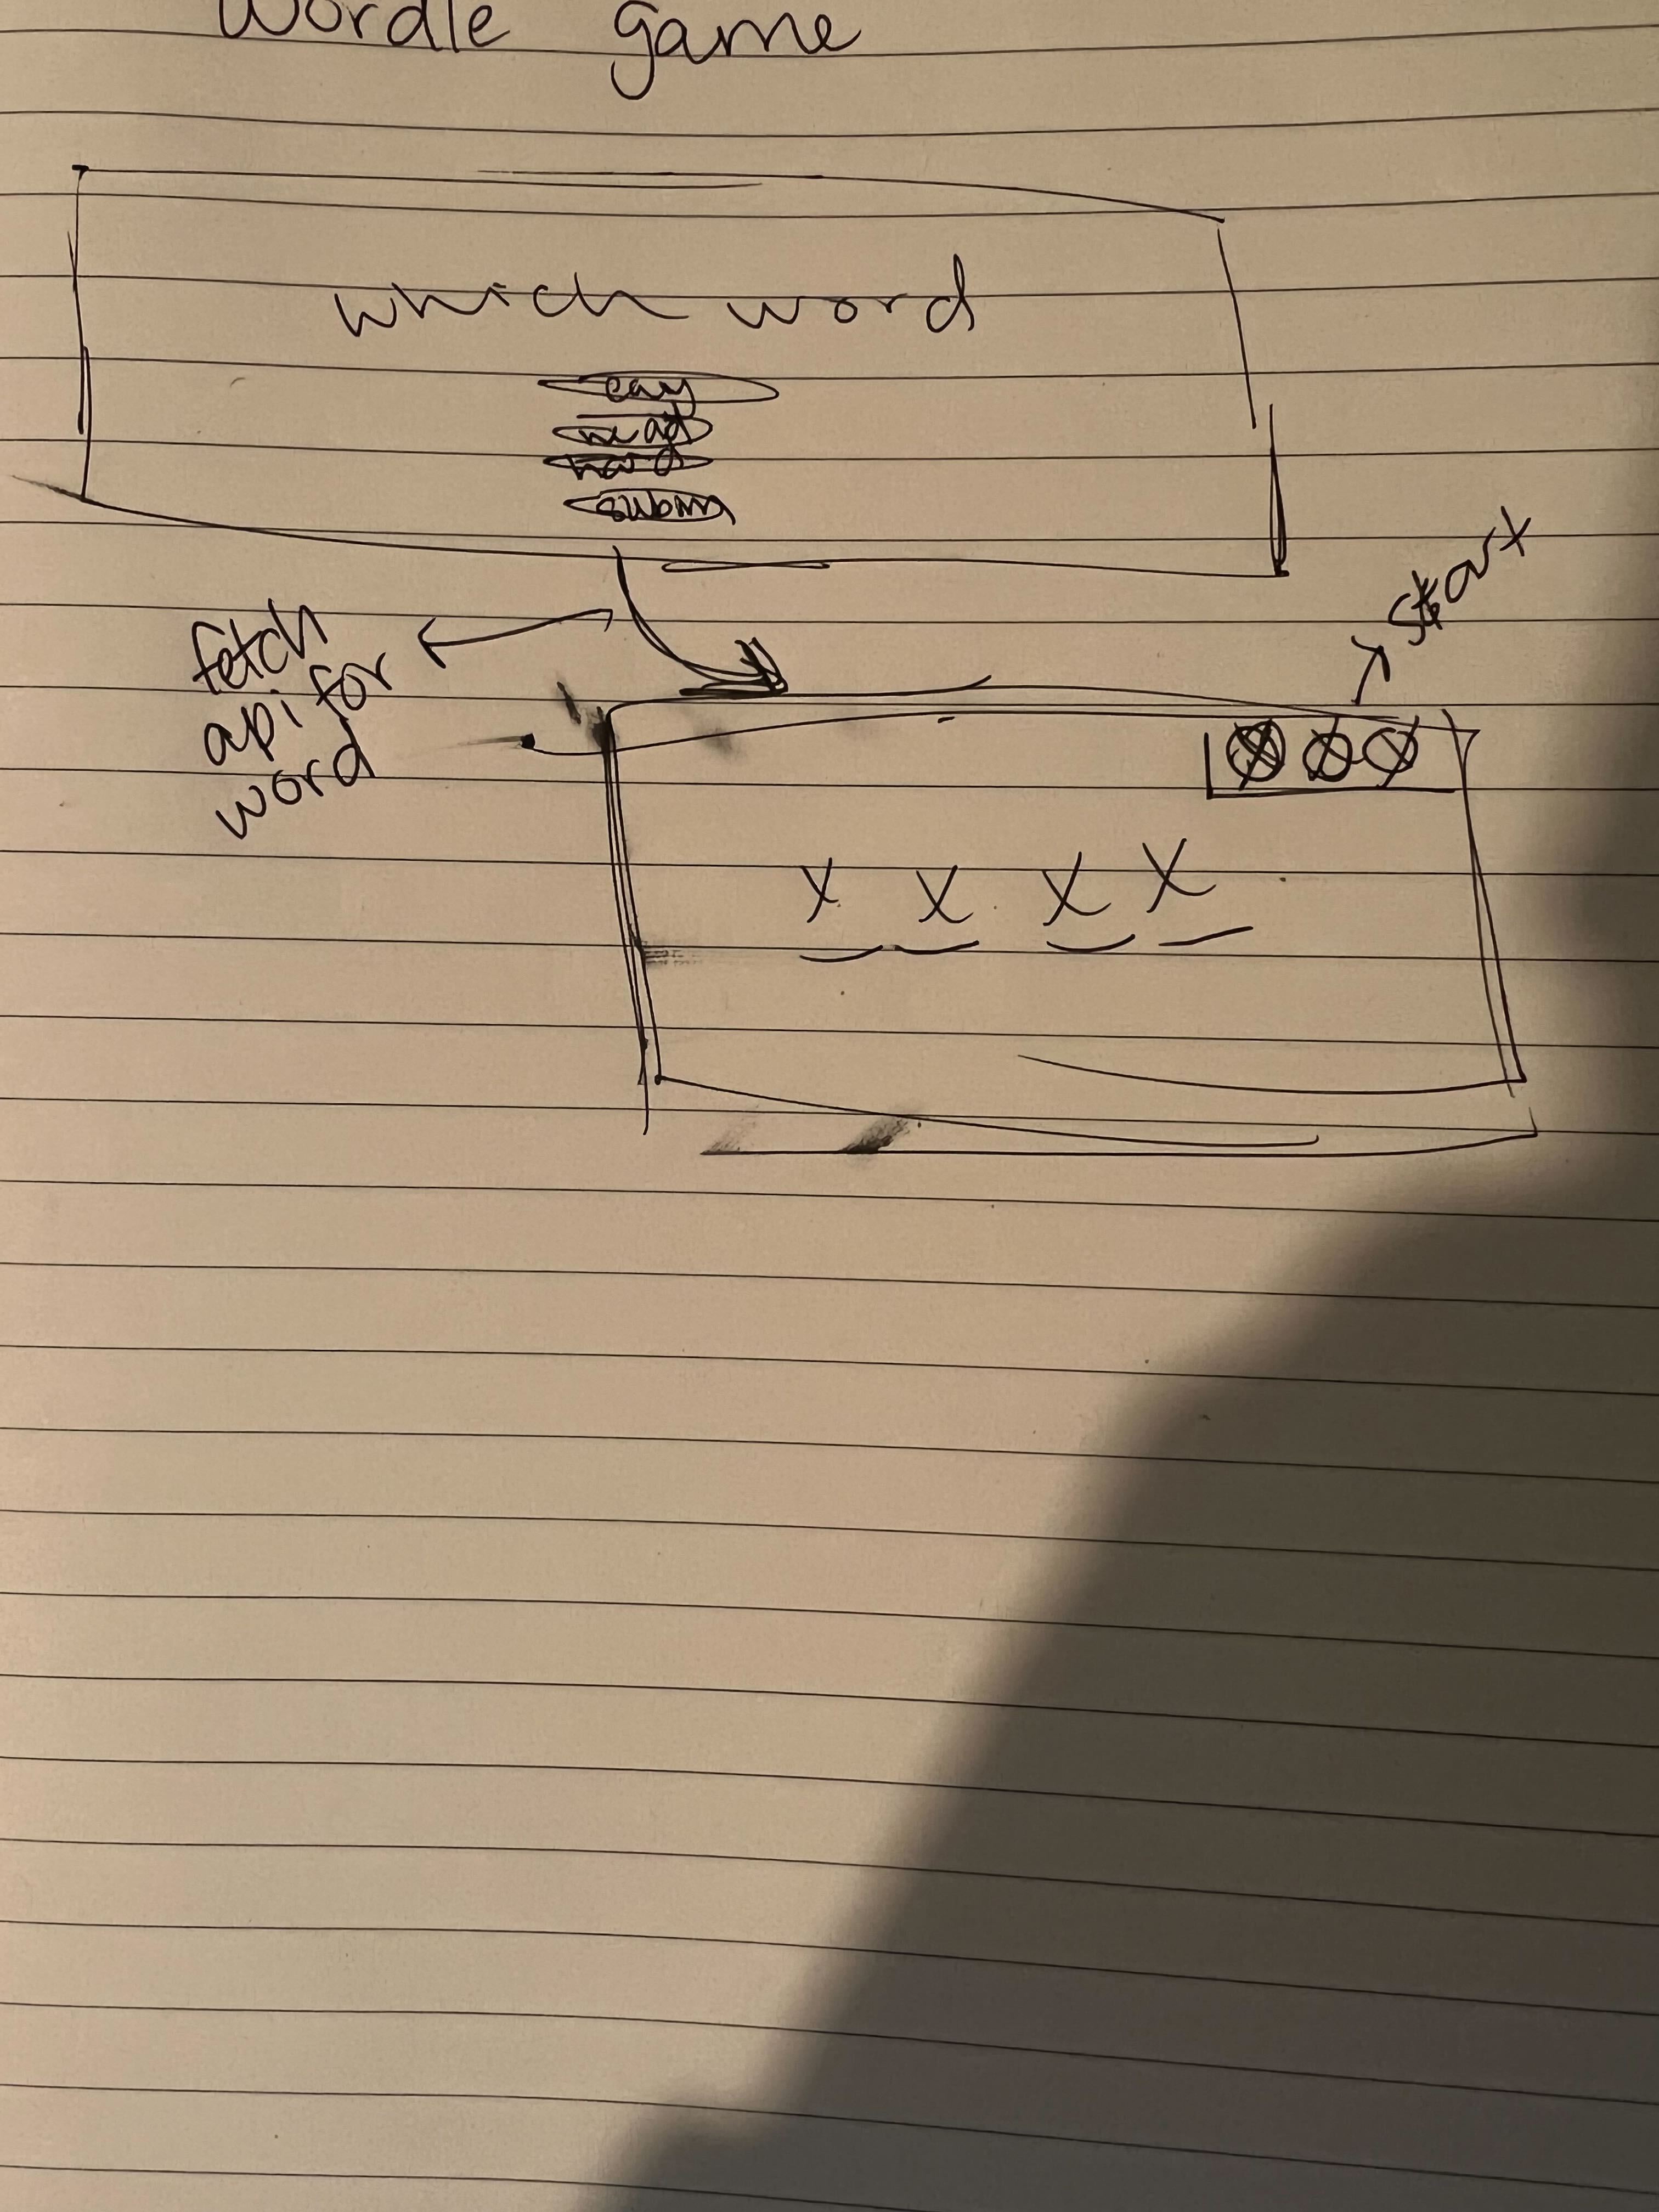 Wordle game
which word
easy
med
hard
subm
fetch
api for
word
start
X X X X